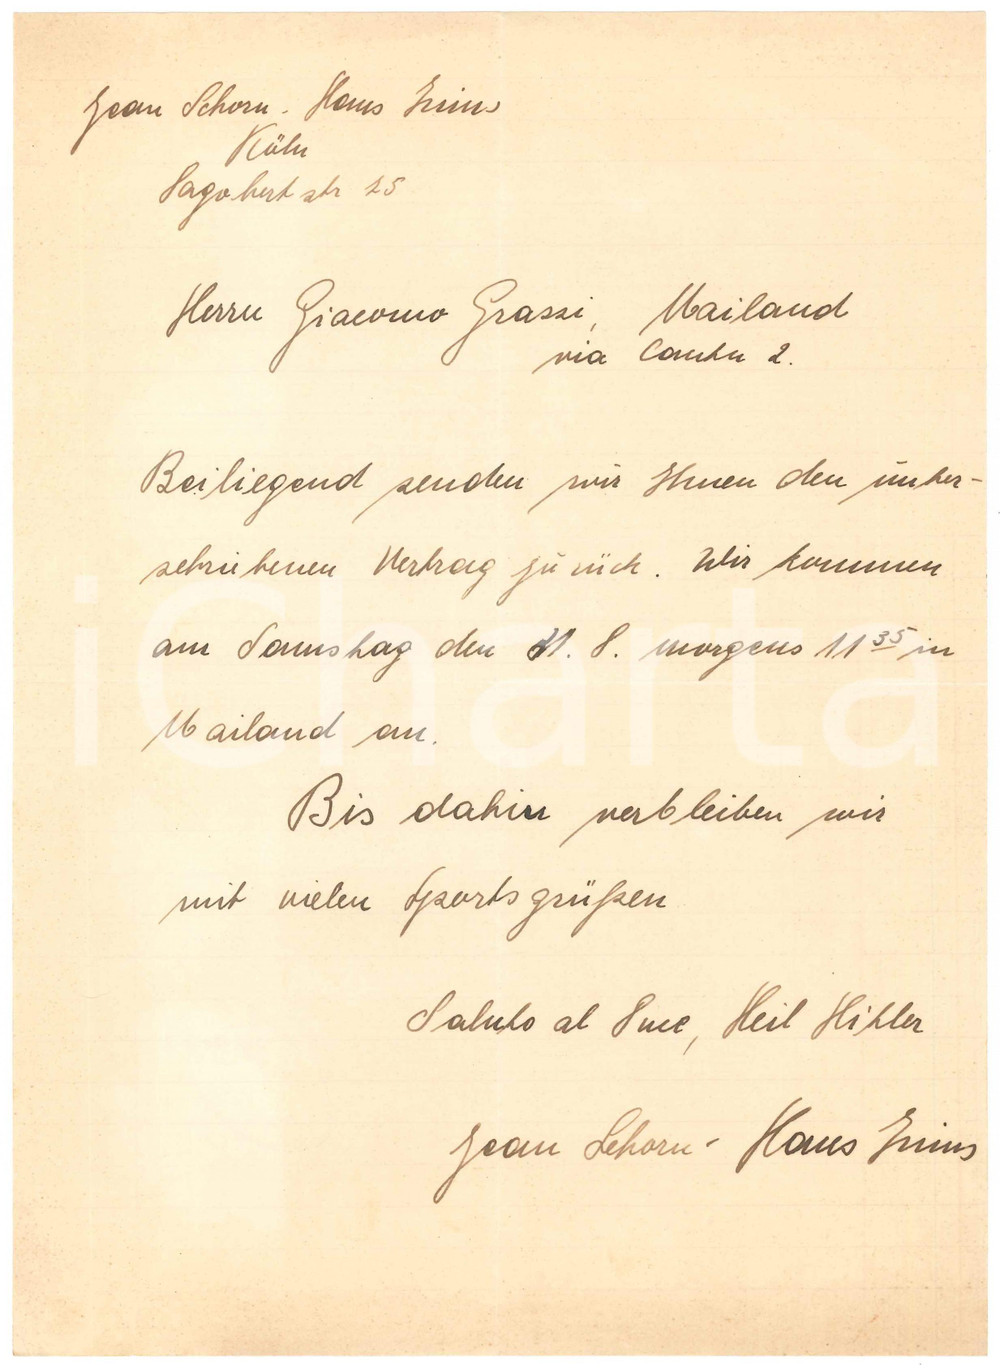 Jean Schorn - Hans Zims
Köln
Dagobertstr 25
Herrn Giacomo Grassi, Mailand
via Cantu 2.
Beiliegend senden wir Ihnen den unter-
schriebenen Vertrag zurück. Wir kommen
am Samstag den 21. 8. morgens 11 35 in
Mailand an.
Bis dahin verbleiben wir
mit vielen Sportsgrüßen
Saluto al Duce, Heil Hitler
Jean Schorn - Hans Zims
iCharta